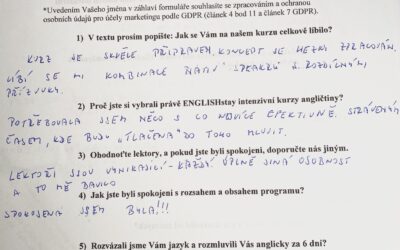 *Uvedením Vašeho jména v záhlaví formuláře souhlasíte se zpracováním a ochranou
osobních údajů pro účely marketingu podle GDPR (článek 4 bod 11 a článek 7 GDPR).
1) V textu prosím popište: Jak se Vám na našem kurzu celkově líbilo?
KURZ JE SKVĚLE PŘIPRAVEN, KONCEPT JE HEZKY ZPRACOVÁN.
LÍBÍ SE MI KOMBINACE NATIV SPEAKRŮ S ROZDÍLNÝMI
PŘÍZVUKY.
2) Proč jste si vybrali právě ENGLISHstay intenzivní kurzy angličtiny?
POTŘEBOVALA JSEM NĚCO S CO NEJVÍCE EFEKTIVNĚ STRÁVENÝM
ČASEM, KDE BUDU "TLAČENA" DO TOHO MLUVIT.
3) Ohodnoťte lektory, a pokud jste byli spokojeni, doporučte nás jiným.
LEKTOŘI JSOU VYNIKAJÍCÍ - KAŽDÝ ÚPLNĚ JINÁ OSOBNOST
A TO MĚ BAVILO
4) Jak jste byli spokojeni s rozsahem a obsahem programu?
SPOKOJENA JSEM BYLA!!!
5) Rozvázali jsme Vám jazyk a rozmluvili Vás anglicky za 6 dní?